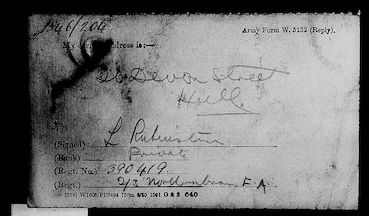 B46/204
Army Form W. 5132 (Reply).
My address is:—
26 Devon Street
Hull
(Signed) L Rubinstein
(Rank) Private
(Regt. No.) 390419.
(Regt.) 2/3 Northumbrian F.A.
G & S 640